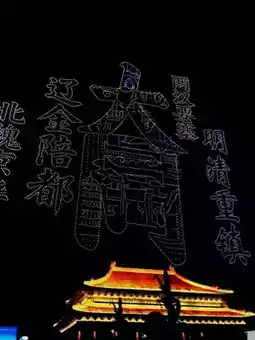 北魏京
辽金陪都
两汉要塞
明清重镇